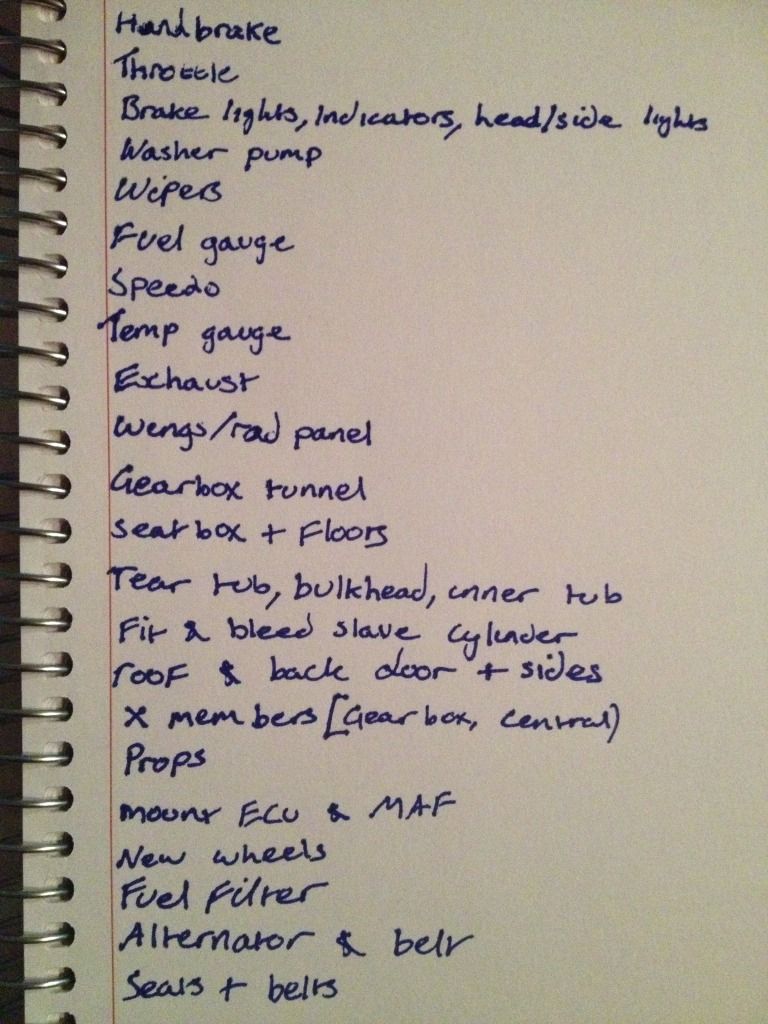 Handbrake
Throttle
Brake lights, Indicators, head/side lights
Washer pump
Wipers
Fuel gauge
Speedo
Temp gauge
Exhaust
Wings/rad panel
Gearbox tunnel
Seatbox + Floors
rear tub, bulkhead, inner tub
Fit & bleed slave cylinder
roof & back door + sides
X members [Gearbox, central)
Props
mount ECU & MAF
New wheels
Fuel Filter
Alternator & belt
Seats + belts